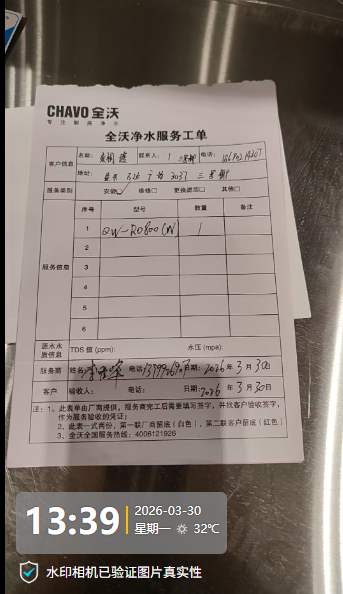 CHAVO 全沃
专注商用净水
全沃净水服务工单
客户信息 名称: 联系人: 电话:
地址: 万达广场 3037 三号
服务类别 安装☑ 维修□ 更换滤芯□ 其他□
服务信息 序号 型号 数量 备注
1 QW-RO800(W) 1
2
3
4
5
6
源水水质信息 TDS 值 (ppm): 水压 (mpa):
服务商 姓名: 电话: 日期: 2026 年 3 月 30 日
客户 验收人: 电话: 日期: 2026 年 3 月 30 日
注: 1、此表单由厂商提供, 服务商完工后需要填写签字, 并找客户验收签字,
作为服务验收的凭证;
2、此表一式两份, 第一联厂商留底 (白色), 第二联客户留底 (红色)
3、全沃全国服务热线: 4006121926
13:39
2026-03-30
星期一 32℃
水印相机已验证图片真实性